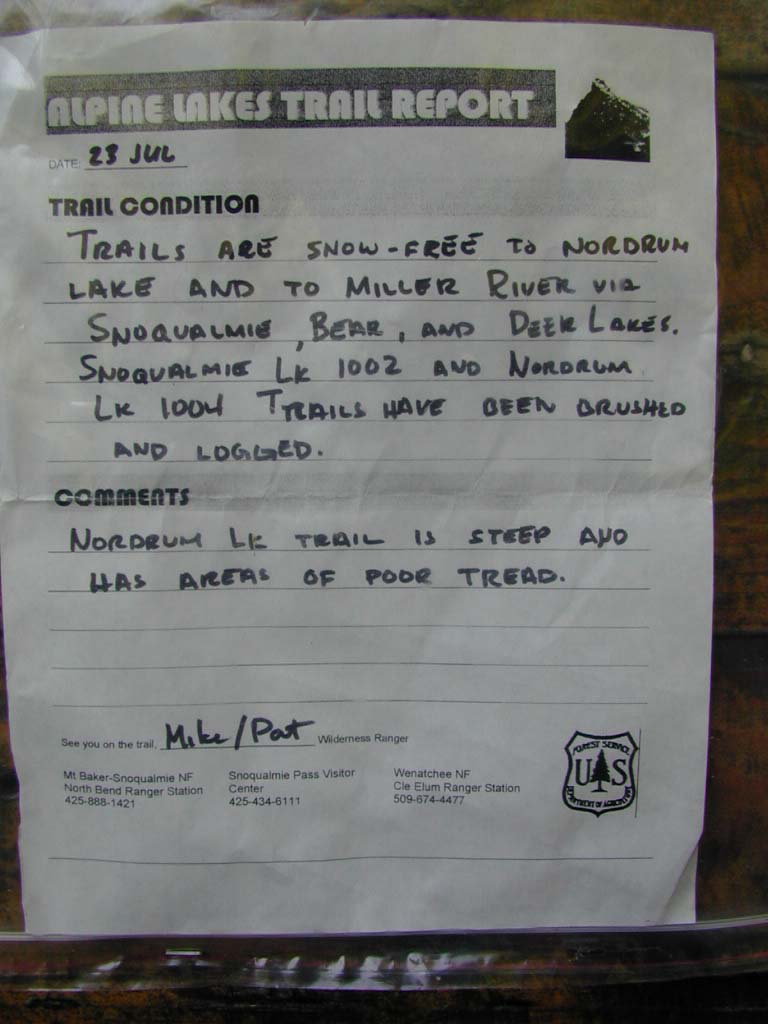 ALPINE LAKES TRAIL REPORT
DATE: 23 JUL
TRAIL CONDITION
TRAILS ARE SNOW-FREE TO NORDRUM
LAKE AND TO MILLER RIVER VIA
SNOQUALMIE, BEAR, AND DEER LAKES.
SNOQUALMIE LK 1002 AND NORDRUM
LK 1004 TRAILS HAVE BEEN BRUSHED
AND LOGGED.
COMMENTS
NORDRUM LK TRAIL IS STEEP AND
HAS AREAS OF POOR TREAD.
See you on the trail, Mike/Pat Wilderness Ranger
Mt Baker-Snoqualmie NF
North Bend Ranger Station
425-888-1421
Snoqualmie Pass Visitor
Center
425-434-6111
Wenatchee NF
Cle Elum Ranger Station
509-674-4477
FOREST SERVICE
U S
DEPARTMENT OF AGRICULTURE